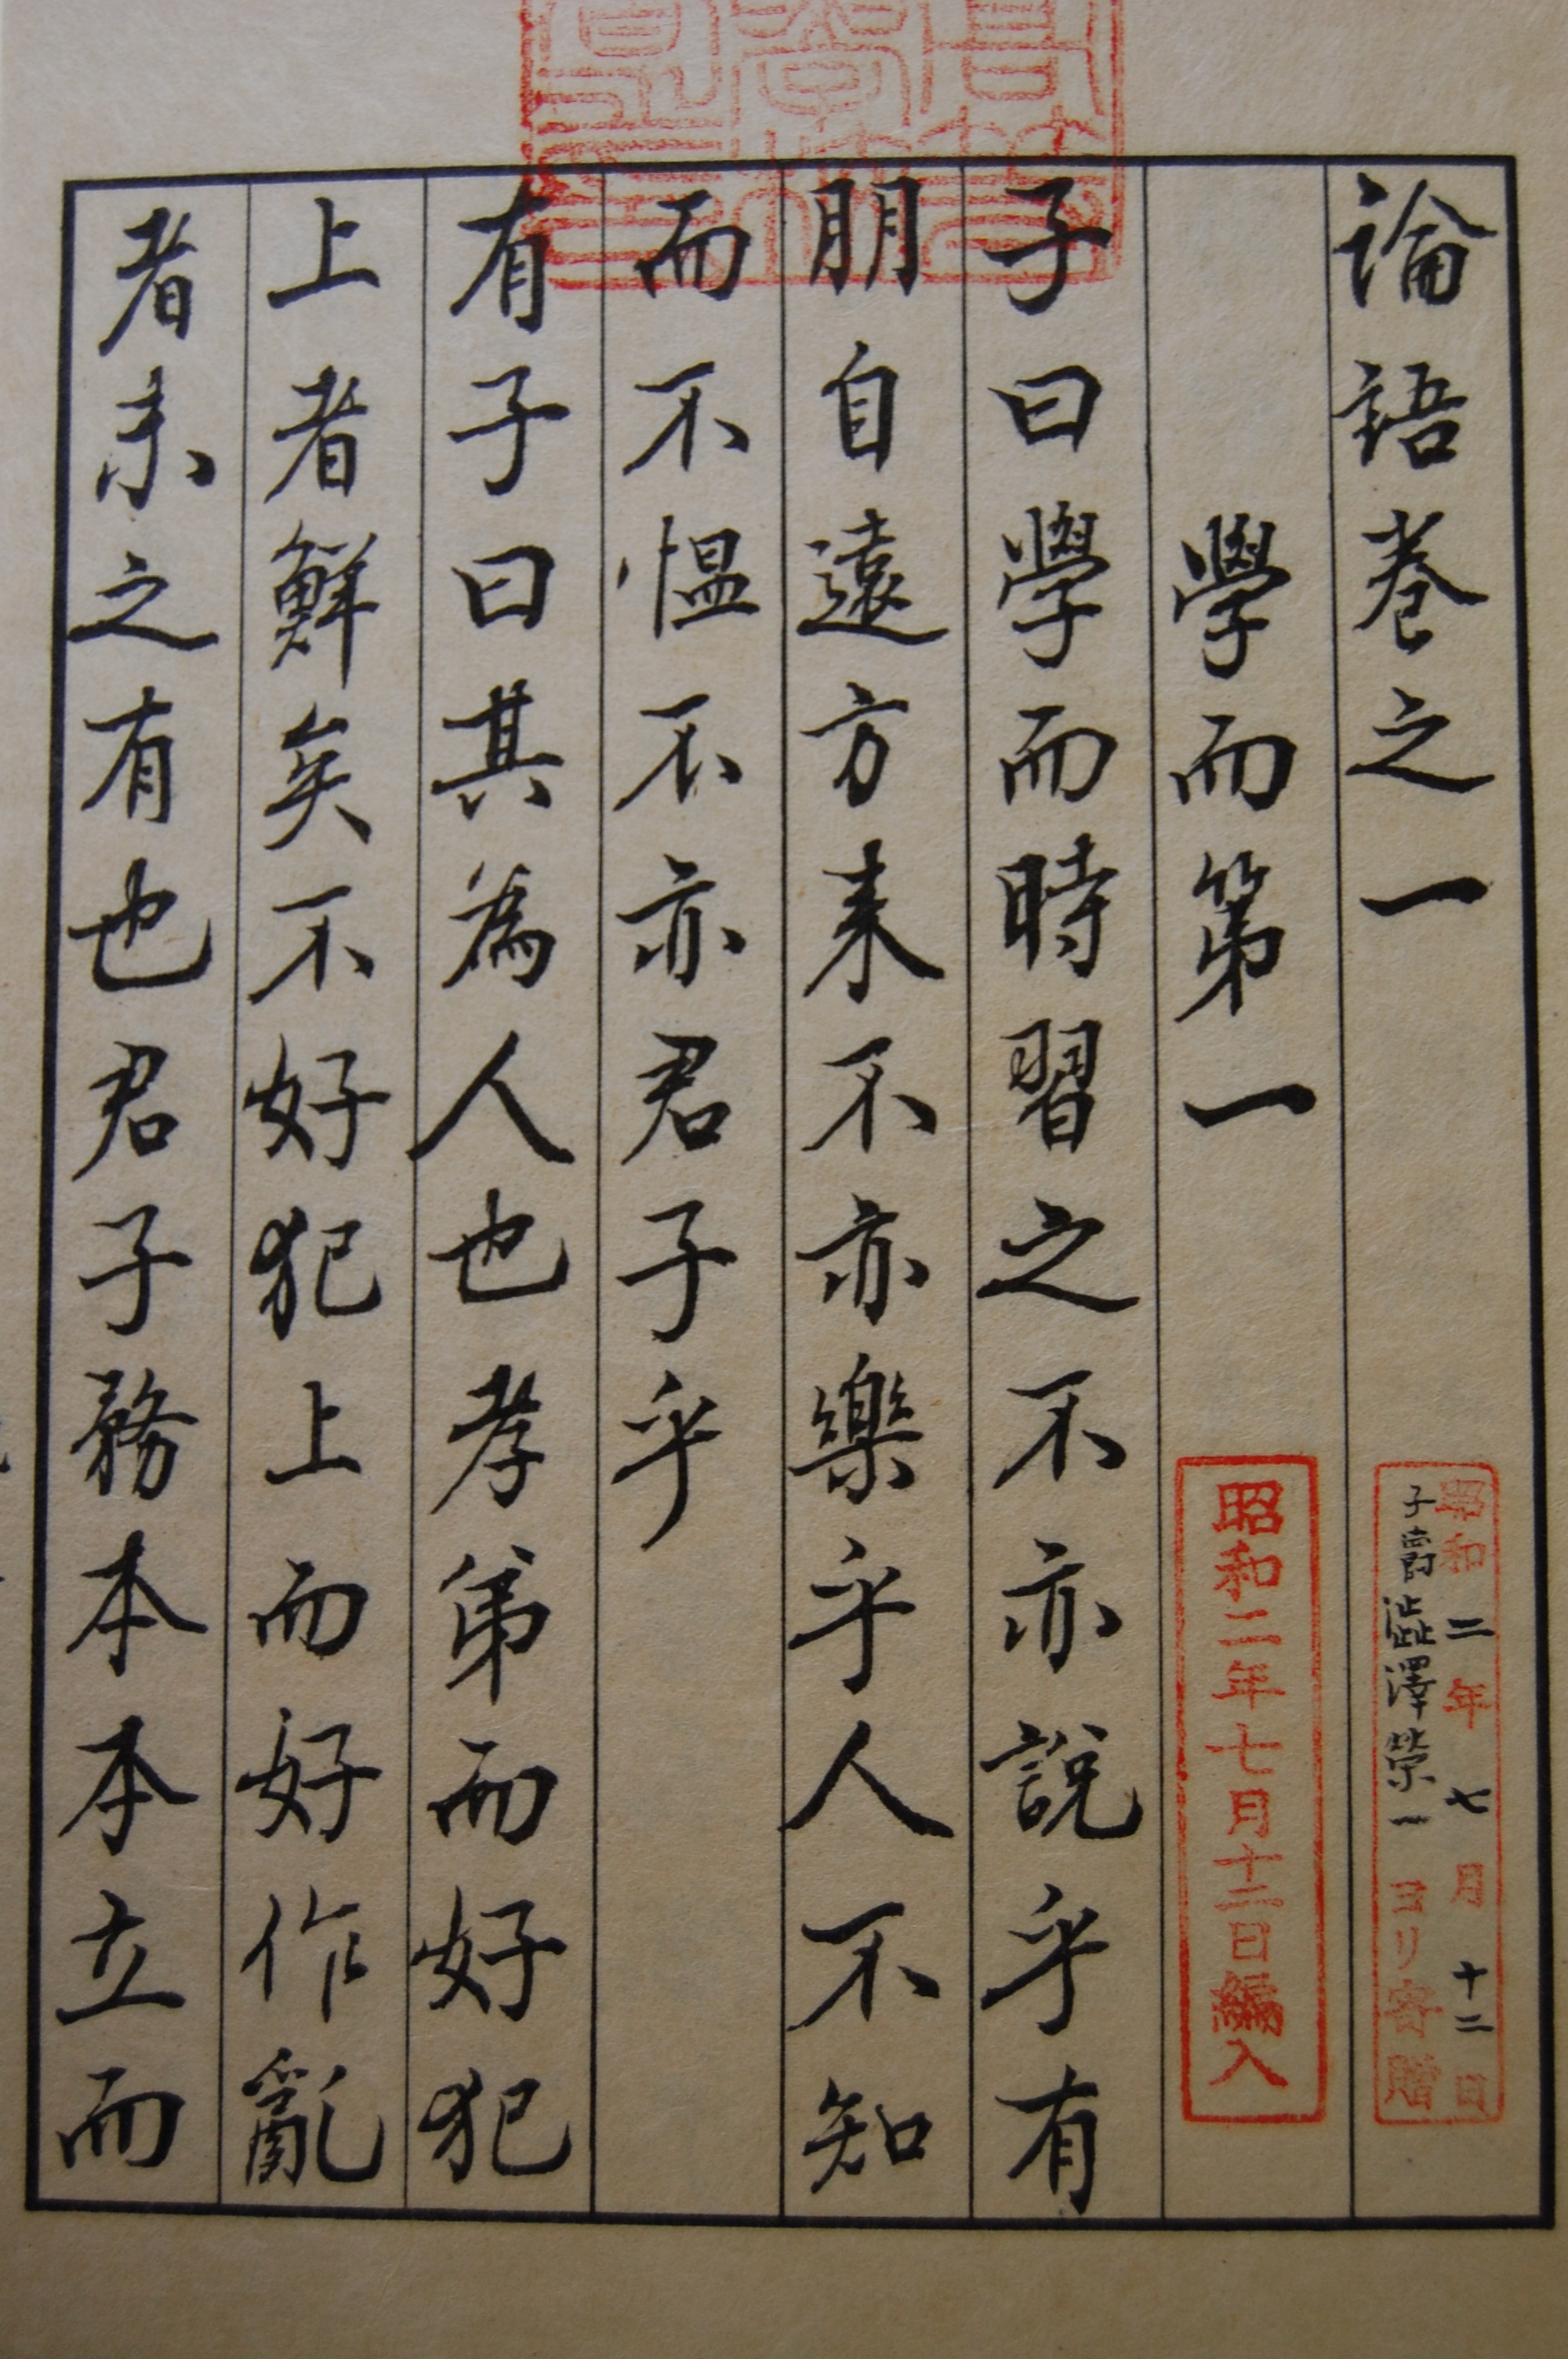 論語巻之一
學而第一
子曰學而時習之不亦説乎有
朋自遠方来不亦樂乎人不知
而不愠不亦君子乎
有子曰其為人也孝弟而好犯
上者鮮矣不好犯上而好作亂
者未之有也君子務本本立而
昭和二年七月十二日
子爵澁澤榮一ヨリ寄贈
昭和二年七月十二日編入